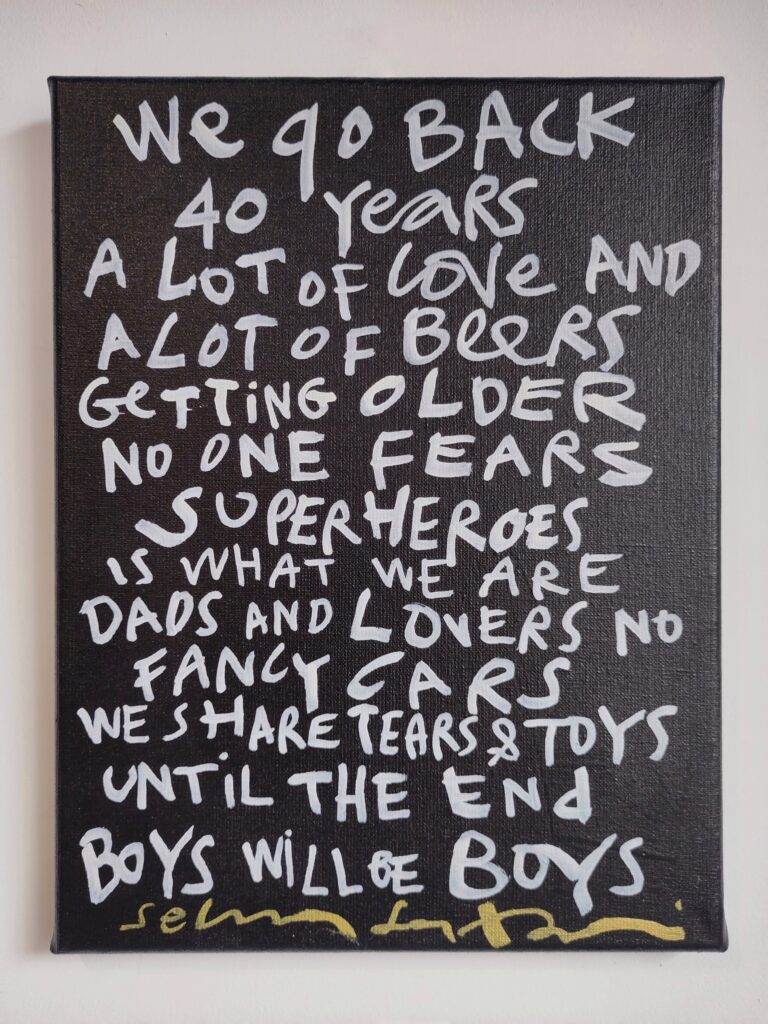 We go BACK
40 years
A LOT OF Love AND
A LOT OF BeeRS
GeTTiNG OLDER
NO ONE FEARS
SUPERHEROES
IS WHAT WE ARE
DADS AND LOVERS NO
FANCY CARS
WE SHARE TEARS & TOYS
UNTiL THE END
BOYS WiLL BE BOYS